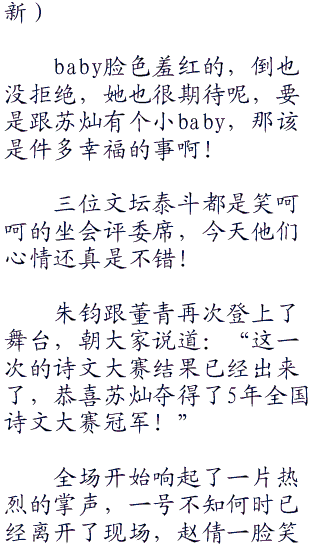 新）
baby脸色羞红的，倒也
没拒绝，她也很期待呢，要
是跟苏灿有个小baby，那该
是件多幸福的事啊！
三位文坛泰斗都是笑呵
呵的坐会评委席，今天他们
心情还真是不错！
朱钧跟董青再次登上了
舞台，朝大家说道：“这一
次的诗文大赛结果已经出来
了，恭喜苏灿夺得了5年全国
诗文大赛冠军！”
全场开始响起了一片热
烈的掌声，一号不知何时已
经离开了现场，赵倩一脸笑